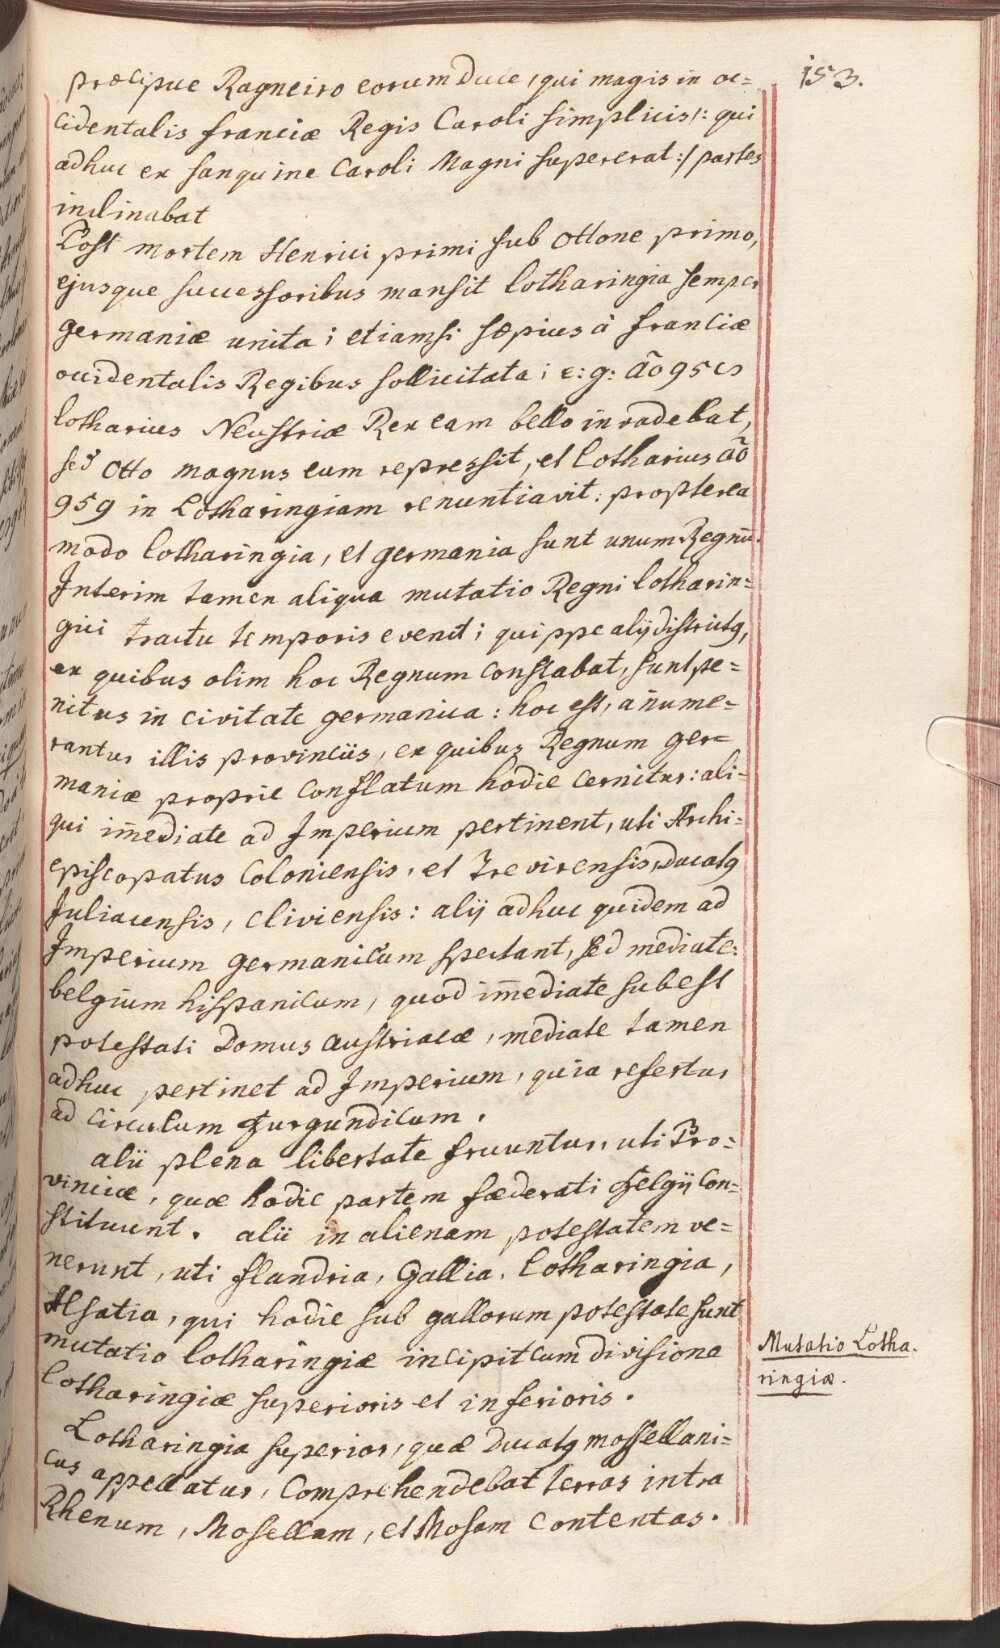 153.
præcipue Ragneiro eorum Duce, qui magis in oc=
cidentalis franciæ Regis Caroli simplicis /: qui
adhuc ex sanguine Caroli Magni supererat :/ partes
inclinabat
Post mortem Henrici primi sub Ottone primo,
ejusque successoribus mansit lotharingia semper
germaniæ unita; etiamsi sæpius à franciæ
occidentalis Regibus sollicitata; e: g: aõ 95
lotharius Neustriæ Rex eam bello invadebat,
sed Otto magnus eum repressit, et lotharius aõ
959 in Lotharingiam renuntiavit: propterea
modo lotharingia, et germania sunt unum Regnũ.
Interim tamen aliqua mutatio Regni lotharin=
gici tractu temporis evenit; quippe alij districtq,
ex quibus olim hoc Regnum constabat, sunt pe=
nitus in civitate germanica: hoc est, añume=
rantur illis provinciis, ex quibus Regnum ger=
maniæ proprie conflatum hodie cernitur: ali=
qui im̃ediate ad Imperium pertinent, uti Archi=
episcopatus Coloniensis, et Trevirensis, Ducatq
Juliacensis, Cliviensis: alij adhuc quidem ad
Imperium germanicum spectant, sed mediate:
belgium hispanicum, quod im̃ediate subest
potestati Domus austriacæ, mediate tamen
adhuc pertinet ad Imperium, quia refertur
ad circulum Burgundicum.
alii plena libertate fruuntur, uti Pro=
vinciæ, quæ hodie partem fæderati Belgij Con=
stituunt. alii in alienam potestatem ve=
nerunt, uti flandria, Gallia, Lotharingia,
Alsatia, qui hodie sub gallorum potestate sunt
mutatio lotharingiæ incipit cum divisione
Lotharingiæ superioris et inferioris.
Mutatio Lotha.
ringiæ.
Lotharingia superior, quæ Ducatq mosellani=
cus appellatur, Comprehendebat terras intra
Rhenum, Mosellam, et Mosam contentas.